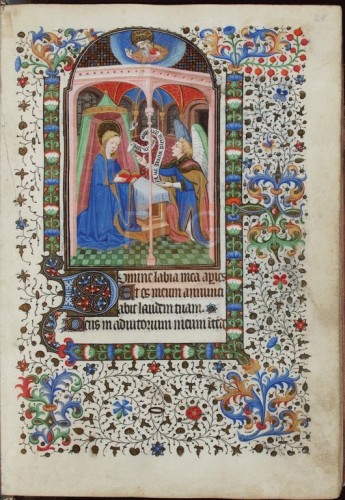 Domine labia mea apies
Et os meum annunci
abit laudem tuam.
Deus in adiutorium meum inte